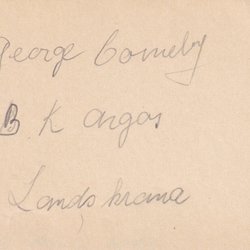 George Comeby
B K Argos
Landskrona